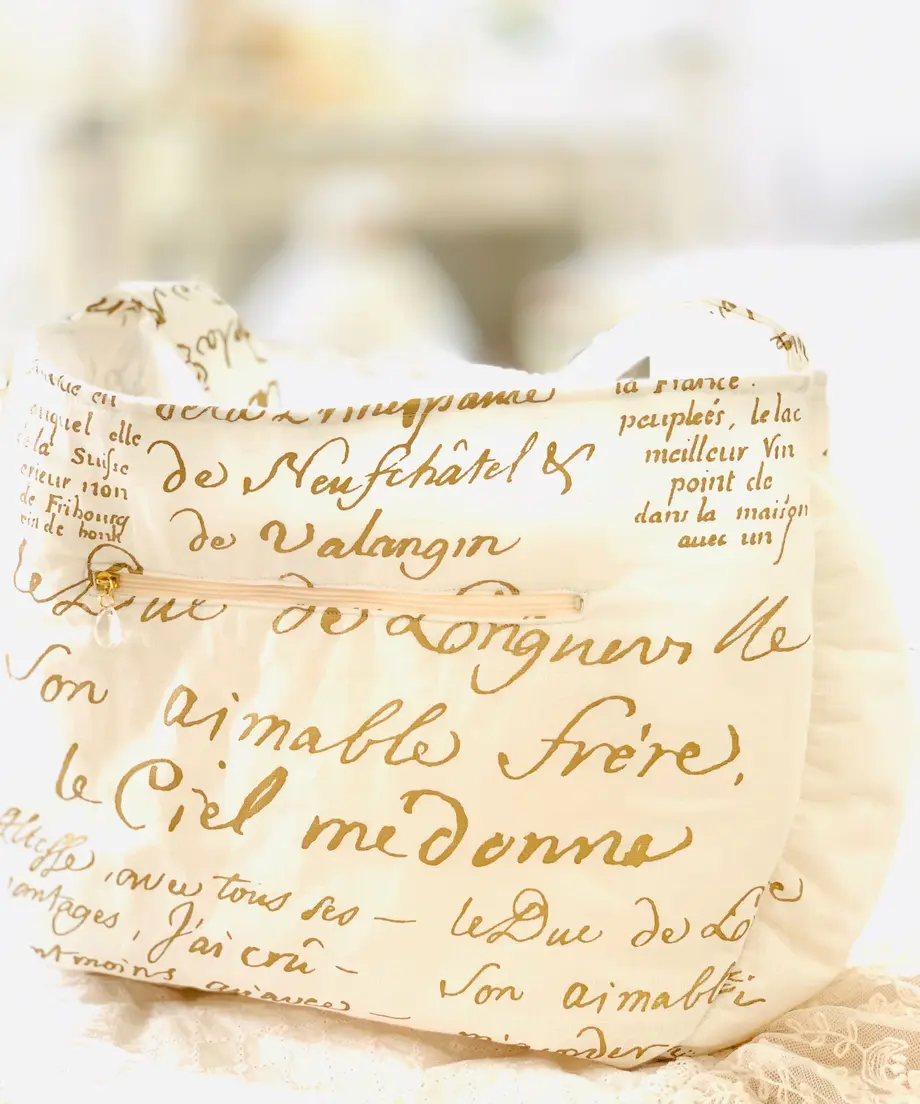 en
elle
de la Suisse
erieur non
de Fribourg
de
de Neufchâtel &
de Valangin
la France.
peupleés, le lac
meilleur Vin
point de
dans la maison
auec un
le Duc de Longueville
Son aimable frére,
le Ciel me donne
, avec tous ses —
antages, J'ai crû –
le Duc de Lo
Son aimabl